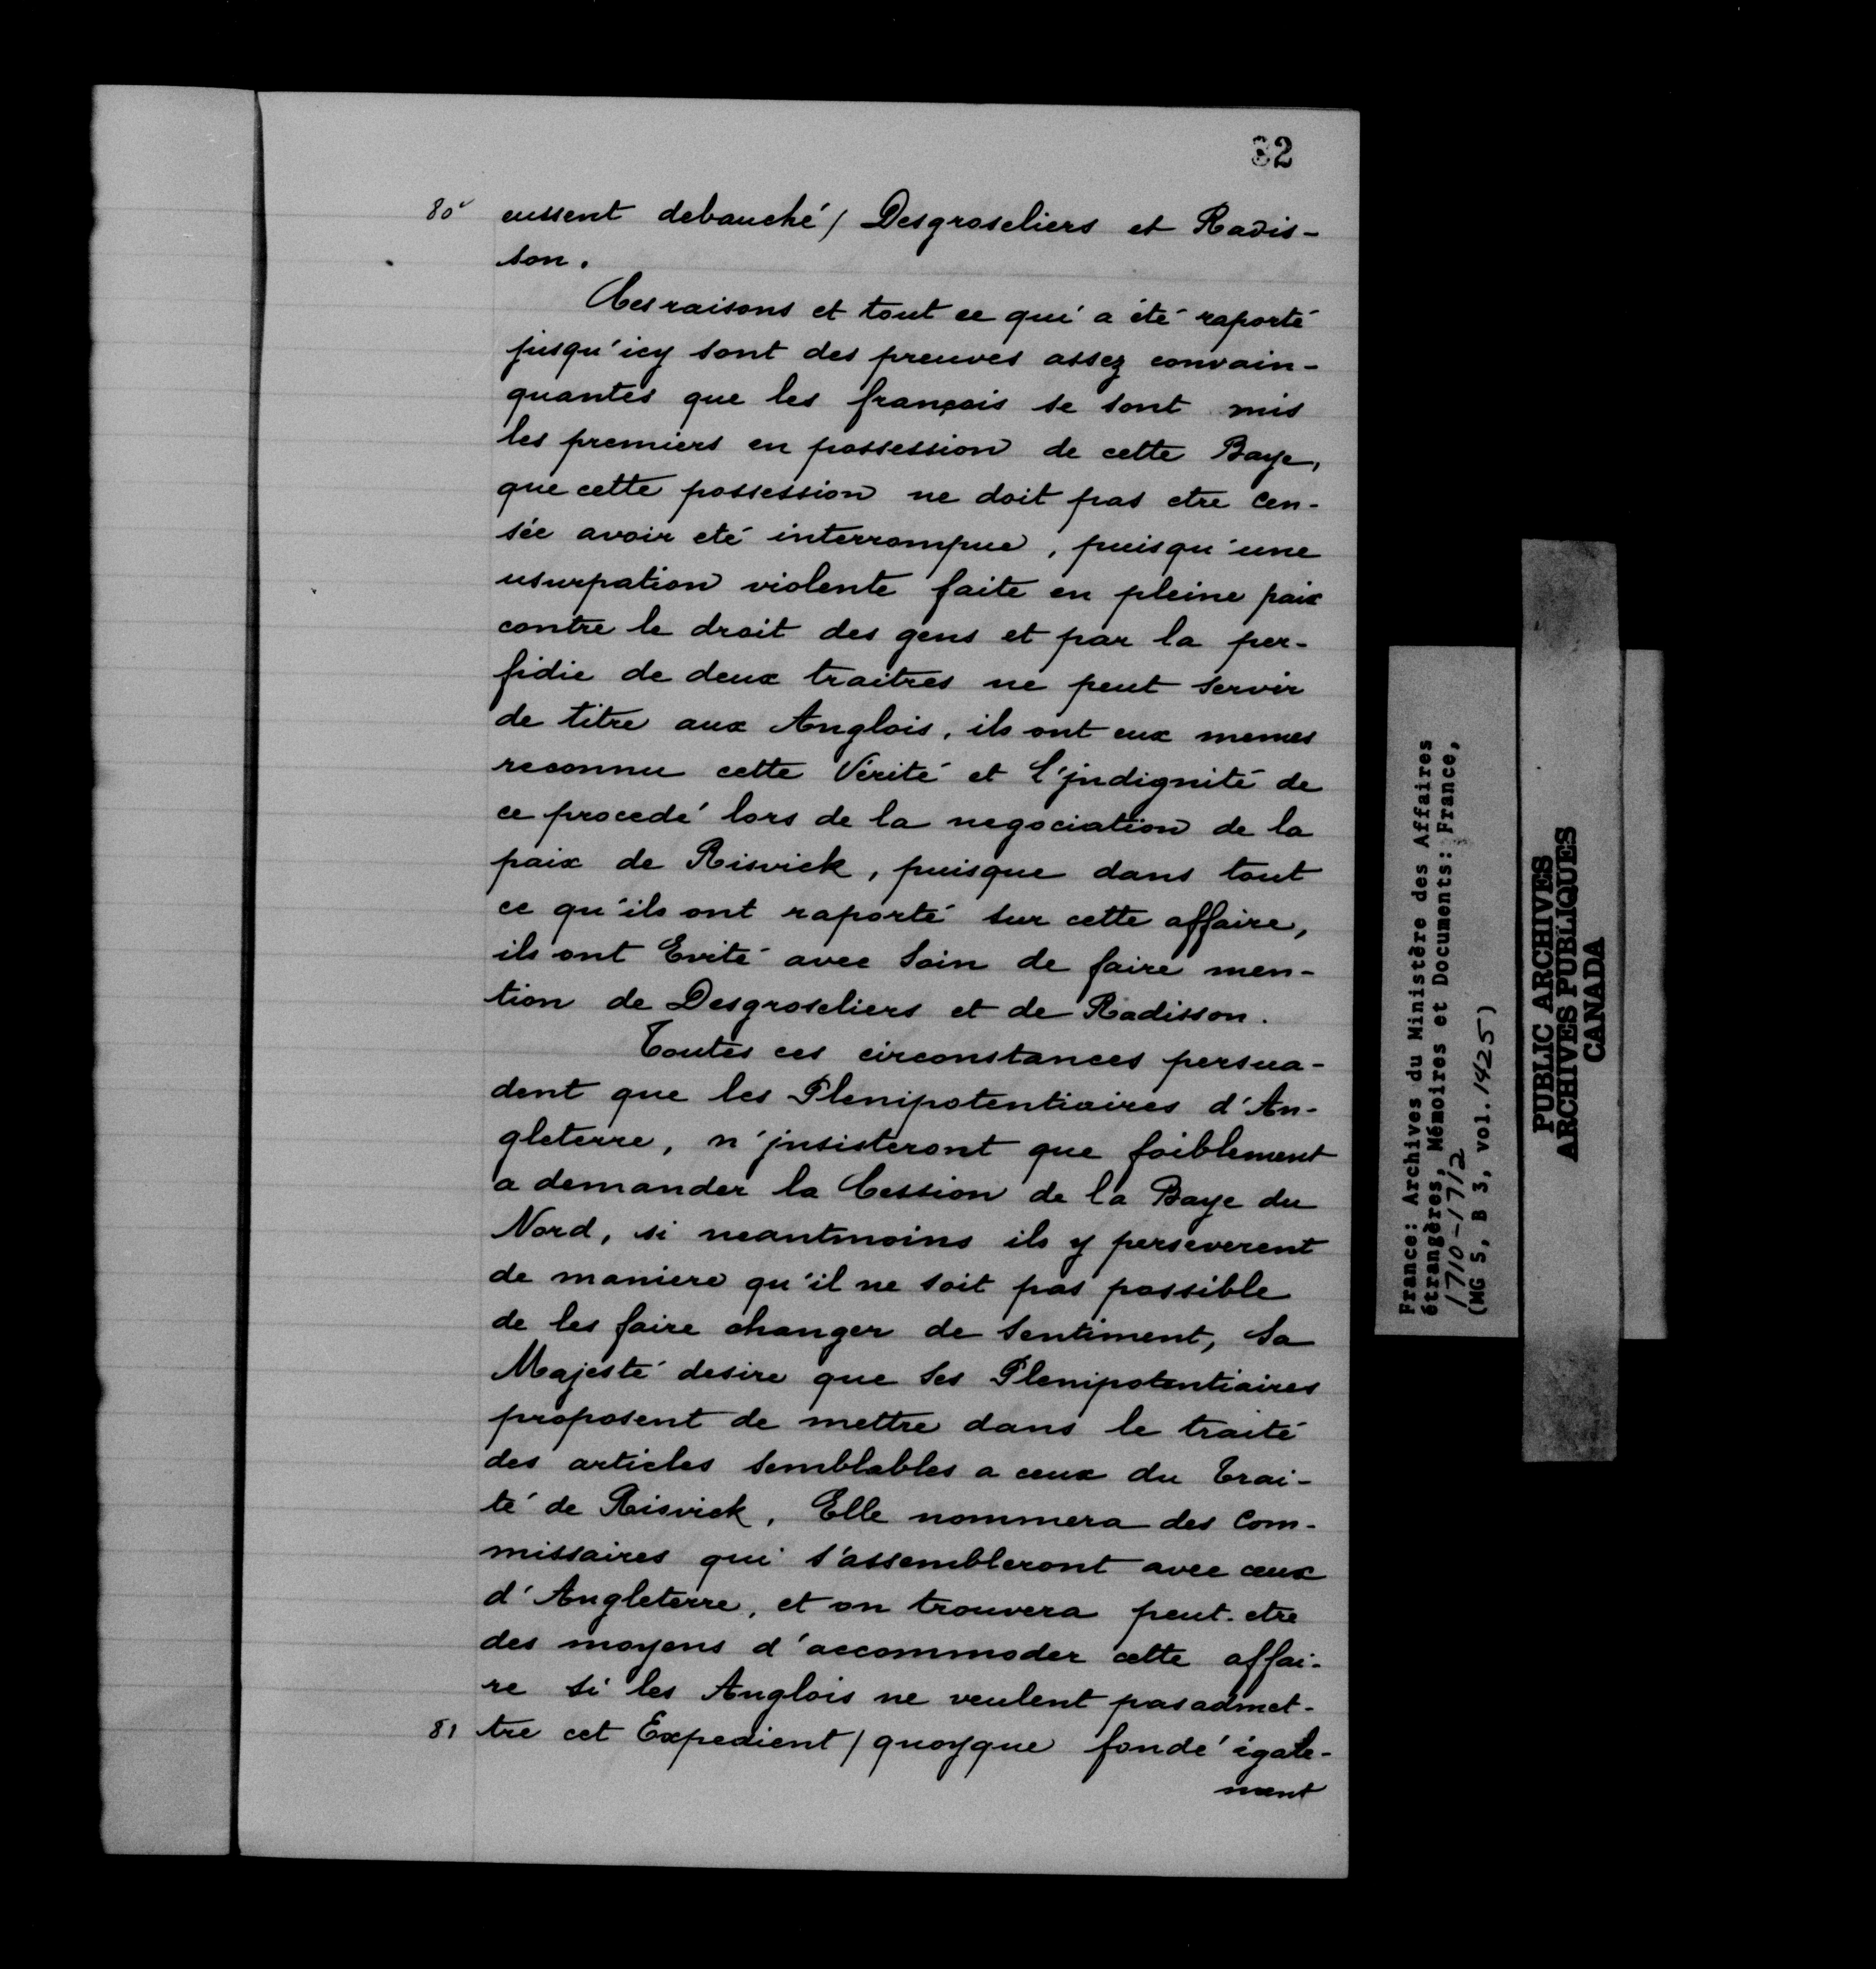 32
80v eussent debauché / Desgroseliers et Radis-
son.
Ces raisons et tout ce qui a été raporté
jusqu'icy sont des preuves assez convain-
quantes que les français se sont mis
les premiers en possession de cette Baye,
que cette possession ne doit pas etre cen-
sée avoir eté interrompue, puisqu'une
usurpation violente faite en pleine paix
contre le droit des gens et par la per-
fidie de deux traitres ne peut servir
de titre aux Anglois, ils ont eux memes
reconnu cette Vérité et l'jndignité de
ce procedé lors de la negociation de la
paix de Risvick, puisque dans tout
ce qu'ils ont raporté sur cette affaire,
ils ont Evité avec soin de faire men-
tion de Desgroseliers et de Radisson.
Toutes ces circonstances persua-
dent que les Plenipotentiaires d'An-
gleterre, n'jnsisteront que foiblement
a demander la Cession de la Baye du
Nord, si neantmoins ils y perseverent
de maniere qu'il ne soit pas possible
de les faire changer de sentiment, Sa
Majesté desire que ses Plenipotentiaires
proposent de mettre dans le traité
des articles semblables a ceux du Trai-
té de Risvick. Elle nommera des Com-
missaires qui s'assembleront avec ceux
d'Angleterre, et on trouvera peut-etre
des moyens d'accommoder cette affai-
re si les Anglois ne veulent pas admet-
81 tre cet Expedient / quoyque fondé égale-
ment
France: Archives du Ministère des Affaires
étrangères, Mémoires et Documents: France,
1710-1712
(MG 5, B 3, vol. 1425)
PUBLIC ARCHIVES
ARCHIVES PUBLIQUES
CANADA